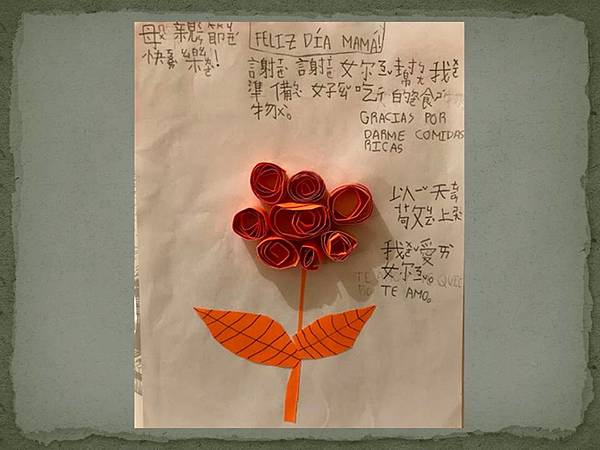 母親節
快樂!
FELIZ DÍA MAMÁ!
謝謝妳幫我
準備好吃的食
物。
GRACIAS POR
DARME COMIDAS
RICAS
以天
敬上
我愛
妳。
TE AMO。